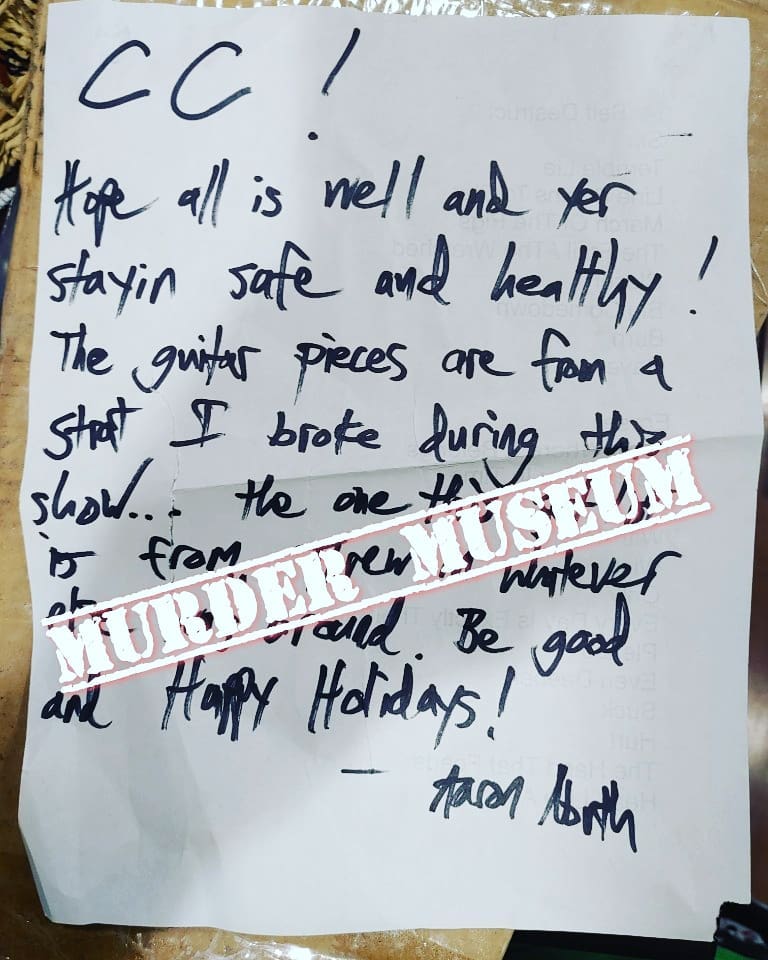 CC !
Hope all is well and yer
stayin safe and healthy!
The guitar pieces are from a
strat I broke during this
show... the one this
is from whatever
around. Be good
and Happy Holidays!
— Aaron North
MURDER MUSEUM